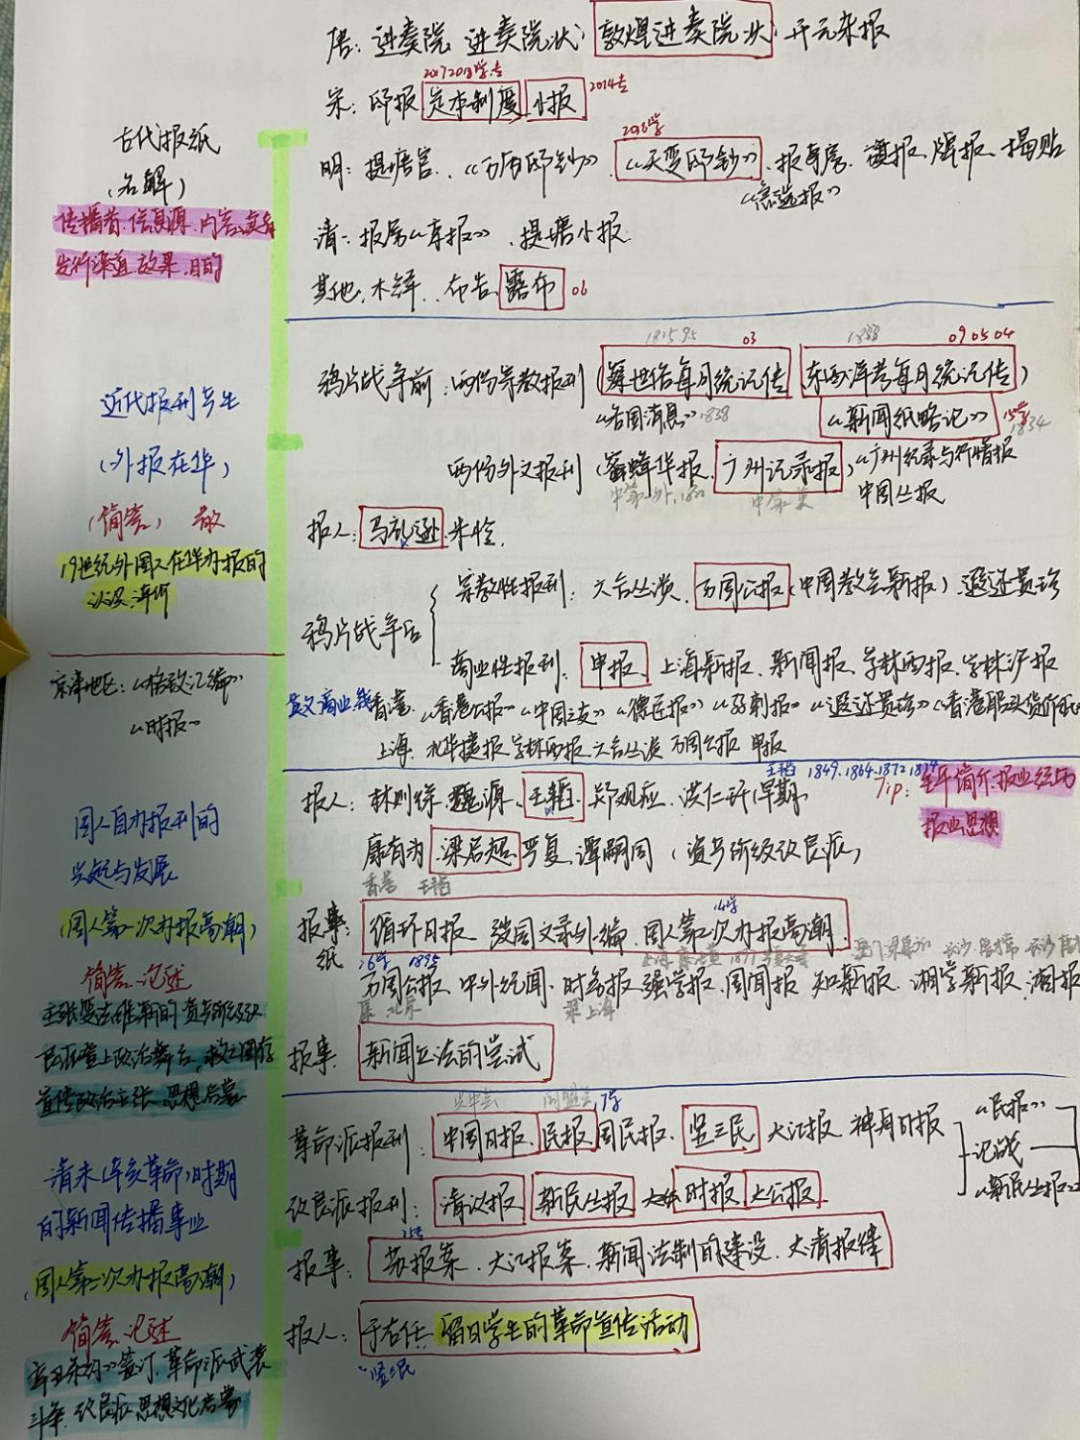 唐：进奏院 进奏院状 敦煌进奏院状 开元杂报
2017 2018学.专
宋：邸报 定本制度 小报 2014专
古代报纸
（名解）
传播者.信息源.内容.
发行渠道 效果.目的
2016学
明：提塘官.《万历邸钞》.《天变邸钞》.报房. 邸报.牌报.揭贴
《急选报》
清：报房《京报》.提塘小报
其他.木铎.布告.露布 06
近代报刊产生
（外报在华）
（简答）
19世纪外国人在华办报的
京津地区：《格致汇编》
《时报》
03 1833 09 05 04
鸦片战争前：两份宗教报刊（察世俗每月统记传 东西洋考每月统记传）
《各国消息》1838 《新闻纸略论》 1834
两份外文报刊（蜜蜂华报.广州记录报）《广州纪录与行情报
中国丛报
报人：马礼逊.米怜.
鸦片战争后
宗教性报刊：六合丛谈.万国公报（中国教会新报）.遐迩贯珍
商业性报刊.申报.上海新报.新闻报.字林西报.字林沪报
英文商业报 香港.《香港公报》《中国之友》《德臣报》《孖剌报》《遐迩贯珍》《香港船头货价纸》
上海.北华捷报 字林西报 六合丛谈 万国公报 申报
国人自办报刊的
兴起与发展
（国人第一次办报高潮）
简答 论述
主张变法维新的资产阶级改
良派登上政治舞台，救亡图存
宣传政治主张.思想启蒙
王韬 1849.1864.1872 1874
报人：林则徐.魏源.王韬.郑观应.洪仁玕（早期
Tip：生平简介.报业经历
报业思想
康有为.梁启超.严复.谭嗣同（资产阶级改良派）
香港 王韬
报纸：循环日报 强国文录外编 国人第一次办报高潮
16学 1895
万国公报.中外纪闻.时务报.强学报.国闻报.知新报.湘学新报.湘报
康 北京 梁 上海
报事：新闻立法的尝试
清末（辛亥革命）时期
的新闻传播事业
（国人第二次办报高潮）
简答 论述
《辛丑条约》签订.革命派武装
斗争.改良派思想文化启蒙
兴中会 同盟会
革命派报刊：中国日报.民报 国民报.竖三民 大江报 神舟日报
《民报》
论战
《新民丛报》
改良派报刊：清议报.新民丛报 时报 大公报
报事：苏报案.大江报案.新闻法制的建设.大清报律
报人：于右任：留日学生的革命宣传活动
竖三民